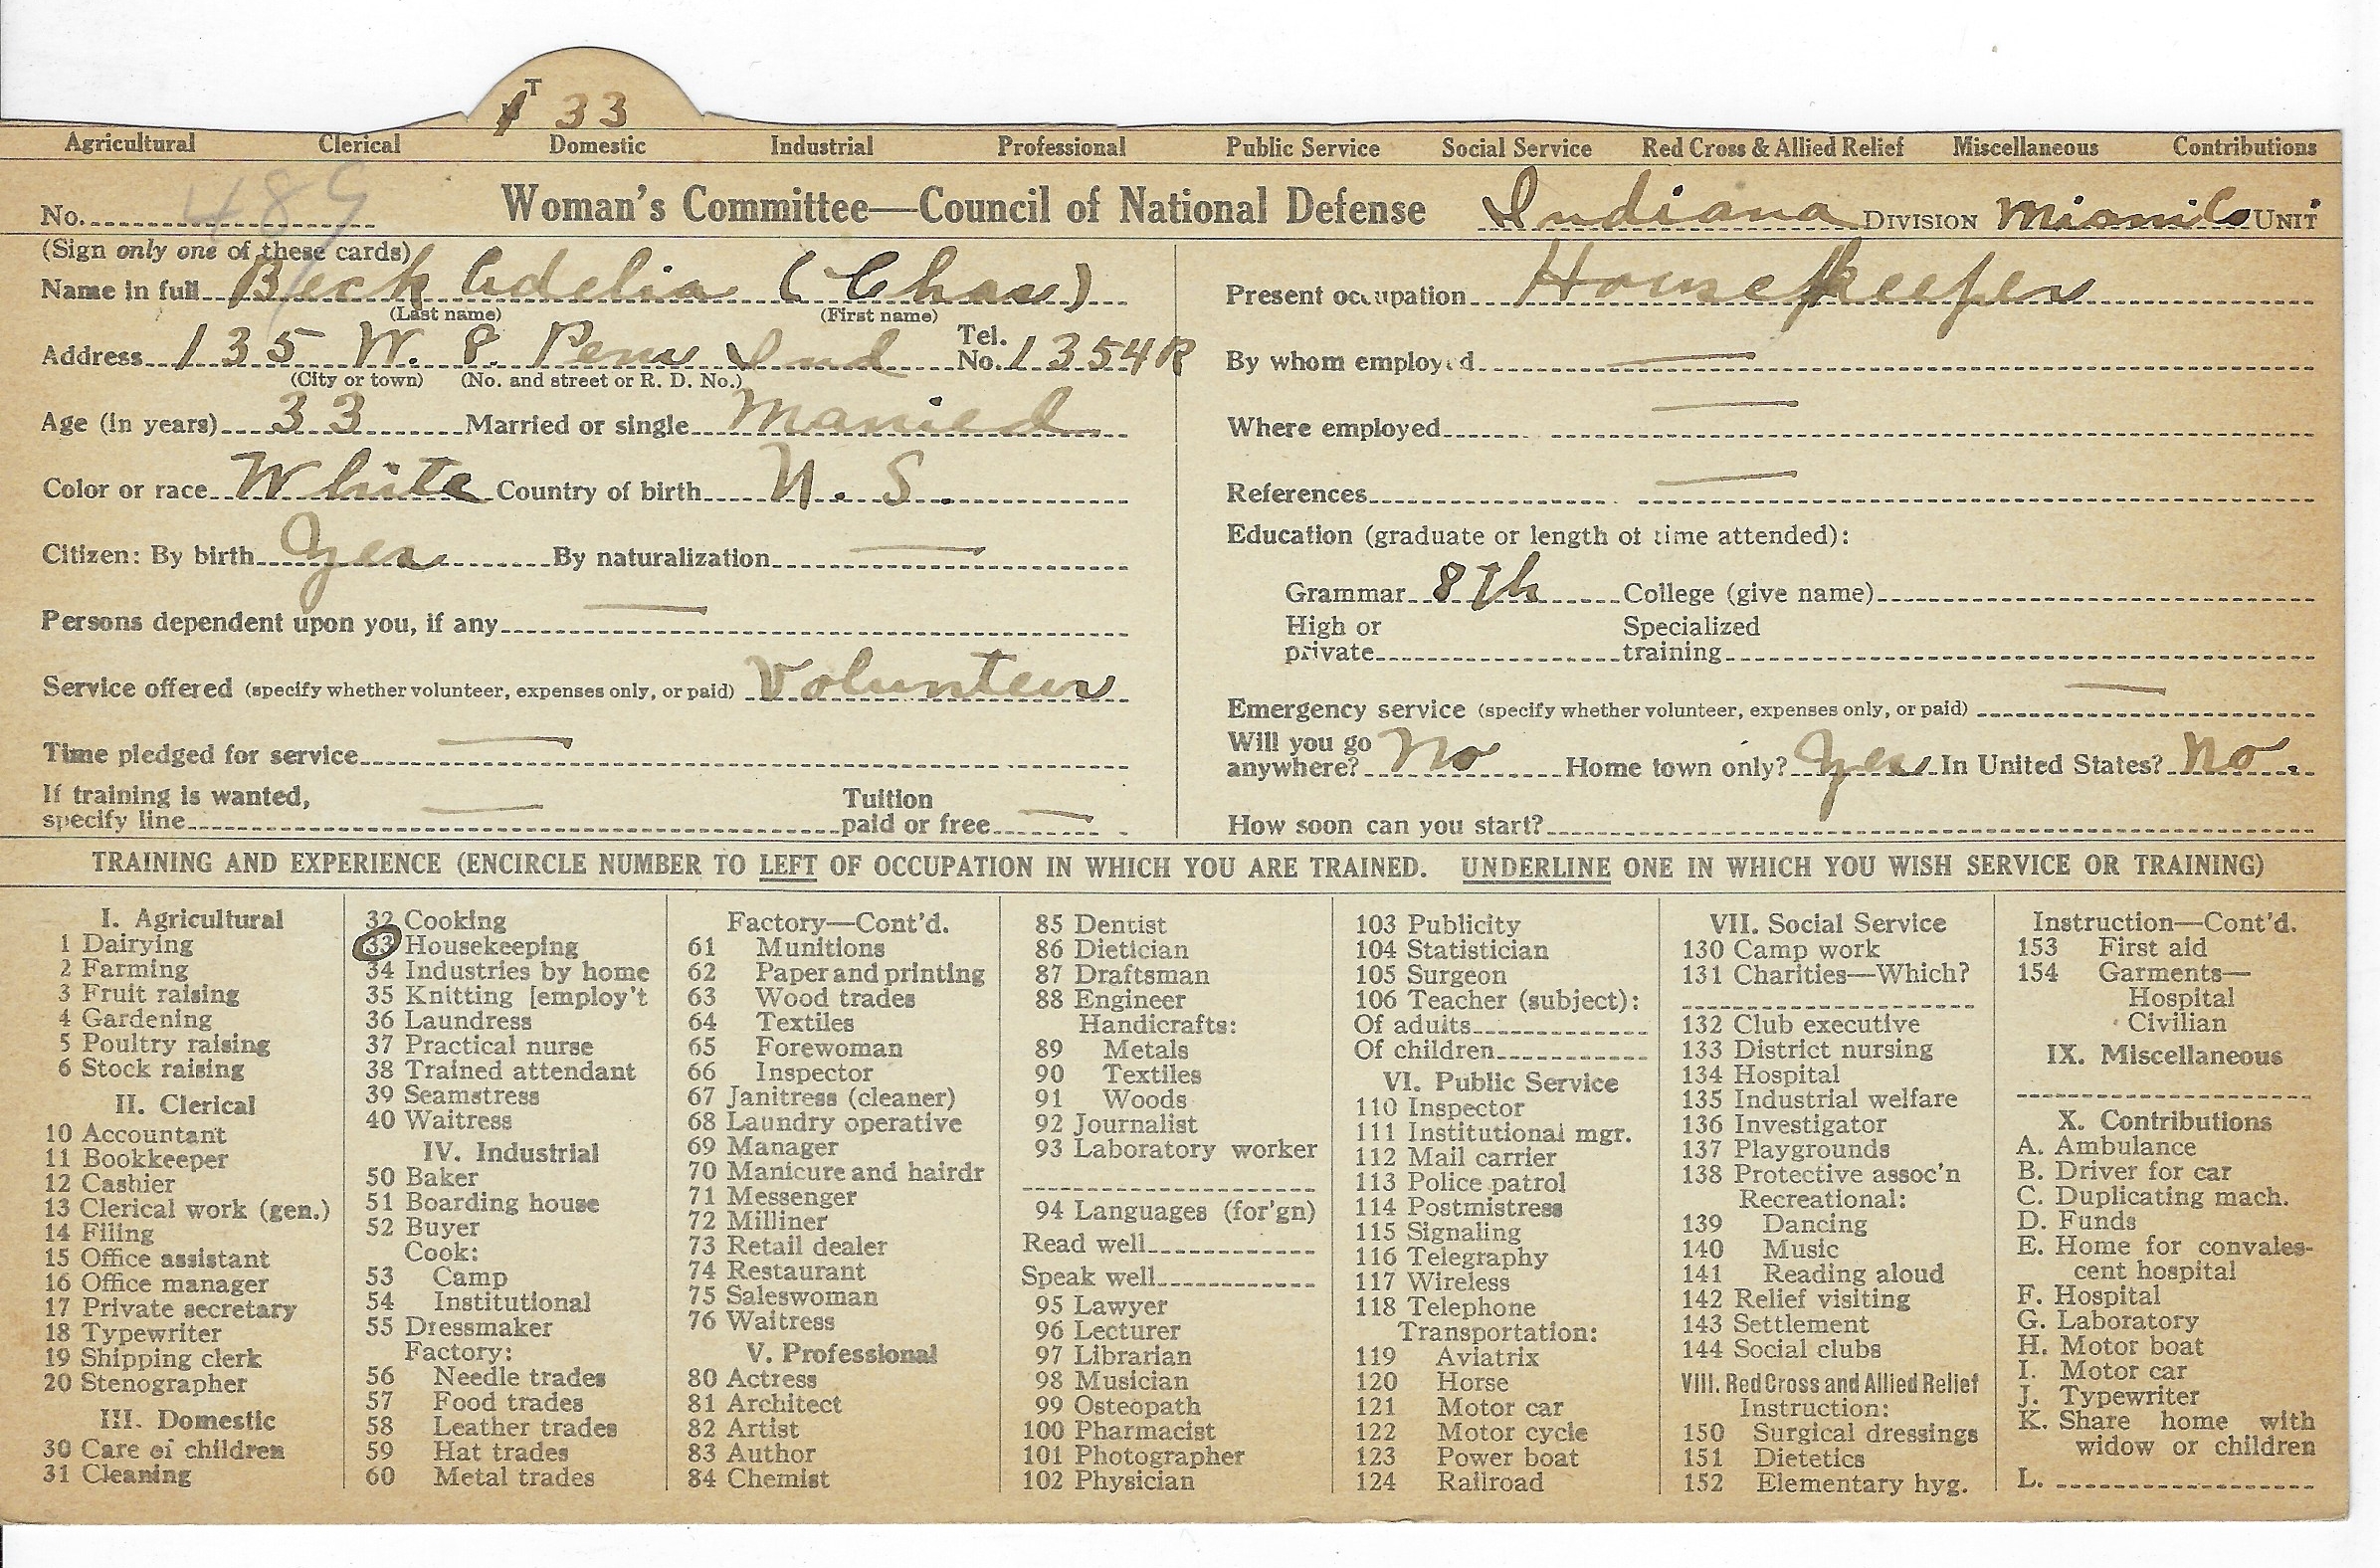 T 33
Agricultural Clerical Domestic Industrial Professional Public Service Social Service Red Cross & Allied Relief Miscellaneous Contributions
No. 489 Woman's Committee—Council of National Defense Indiana DIVISION Miami Co UNIT
(Sign only one of these cards)
Name in full Beck Adelia (Chas)
(Last name) (First name)
Address 135 W. 8. Peru Ind Tel. No. 1354R
(City or town) (No. and street or R. D. No.)
Age (in years) 33 Married or single Married
Color or race White Country of birth U. S.
Citizen: By birth Yes By naturalization —
Persons dependent upon you, if any —
Service offered (specify whether volunteer, expenses only, or paid) Volunteer
Time pledged for service —
If training is wanted,
specify line — Tuition paid or free —
Present occupation Housekeeper
By whom employed —
Where employed —
References —
Education (graduate or length of time attended):
Grammar 8th College (give name)
High or private Specialized training
Emergency service (specify whether volunteer, expenses only, or paid) —
Will you go anywhere? No Home town only? Yes In United States? No.
How soon can you start?
TRAINING AND EXPERIENCE (ENCIRCLE NUMBER TO LEFT OF OCCUPATION IN WHICH YOU ARE TRAINED. UNDERLINE ONE IN WHICH YOU WISH SERVICE OR TRAINING)
I. Agricultural
1 Dairying
2 Farming
3 Fruit raising
4 Gardening
5 Poultry raising
6 Stock raising
II. Clerical
10 Accountant
11 Bookkeeper
12 Cashier
13 Clerical work (gen.)
14 Filing
15 Office assistant
16 Office manager
17 Private secretary
18 Typewriter
19 Shipping clerk
20 Stenographer
III. Domestic
30 Care of children
31 Cleaning
32 Cooking
33 Housekeeping
34 Industries by home
35 Knitting [employ't
36 Laundress
37 Practical nurse
38 Trained attendant
39 Seamstress
40 Waitress
IV. Industrial
50 Baker
51 Boarding house
52 Buyer
Cook:
53 Camp
54 Institutional
55 Dressmaker
Factory:
56 Needle trades
57 Food trades
58 Leather trades
59 Hat trades
60 Metal trades
Factory—Cont'd.
61 Munitions
62 Paper and printing
63 Wood trades
64 Textiles
65 Forewoman
66 Inspector
67 Janitress (cleaner)
68 Laundry operative
69 Manager
70 Manicure and hairdr
71 Messenger
72 Milliner
73 Retail dealer
74 Restaurant
75 Saleswoman
76 Waitress
V. Professional
80 Actress
81 Architect
82 Artist
83 Author
84 Chemist
85 Dentist
86 Dietician
87 Draftsman
88 Engineer
Handicrafts:
89 Metals
90 Textiles
91 Woods
92 Journalist
93 Laboratory worker
94 Languages (for'gn)
Read well
Speak well
95 Lawyer
96 Lecturer
97 Librarian
98 Musician
99 Osteopath
100 Pharmacist
101 Photographer
102 Physician
103 Publicity
104 Statistician
105 Surgeon
106 Teacher (subject):
Of adults
Of children
VI. Public Service
110 Inspector
111 Institutional mgr.
112 Mail carrier
113 Police patrol
114 Postmistress
115 Signaling
116 Telegraphy
117 Wireless
118 Telephone
Transportation:
119 Aviatrix
120 Horse
121 Motor car
122 Motor cycle
123 Power boat
124 Railroad
VII. Social Service
130 Camp work
131 Charities—Which?
132 Club executive
133 District nursing
134 Hospital
135 Industrial welfare
136 Investigator
137 Playgrounds
138 Protective assoc'n
Recreational:
139 Dancing
140 Music
141 Reading aloud
142 Relief visiting
143 Settlement
144 Social clubs
VIII. Red Cross and Allied Relief
Instruction:
150 Surgical dressings
151 Dietetics
152 Elementary hyg.
Instruction—Cont'd.
153 First aid
154 Garments—
Hospital
Civilian
IX. Miscellaneous
X. Contributions
A. Ambulance
B. Driver for car
C. Duplicating mach.
D. Funds
E. Home for convales-
cent hospital
F. Hospital
G. Laboratory
H. Motor boat
I. Motor car
J. Typewriter
K. Share home with
widow or children
L.